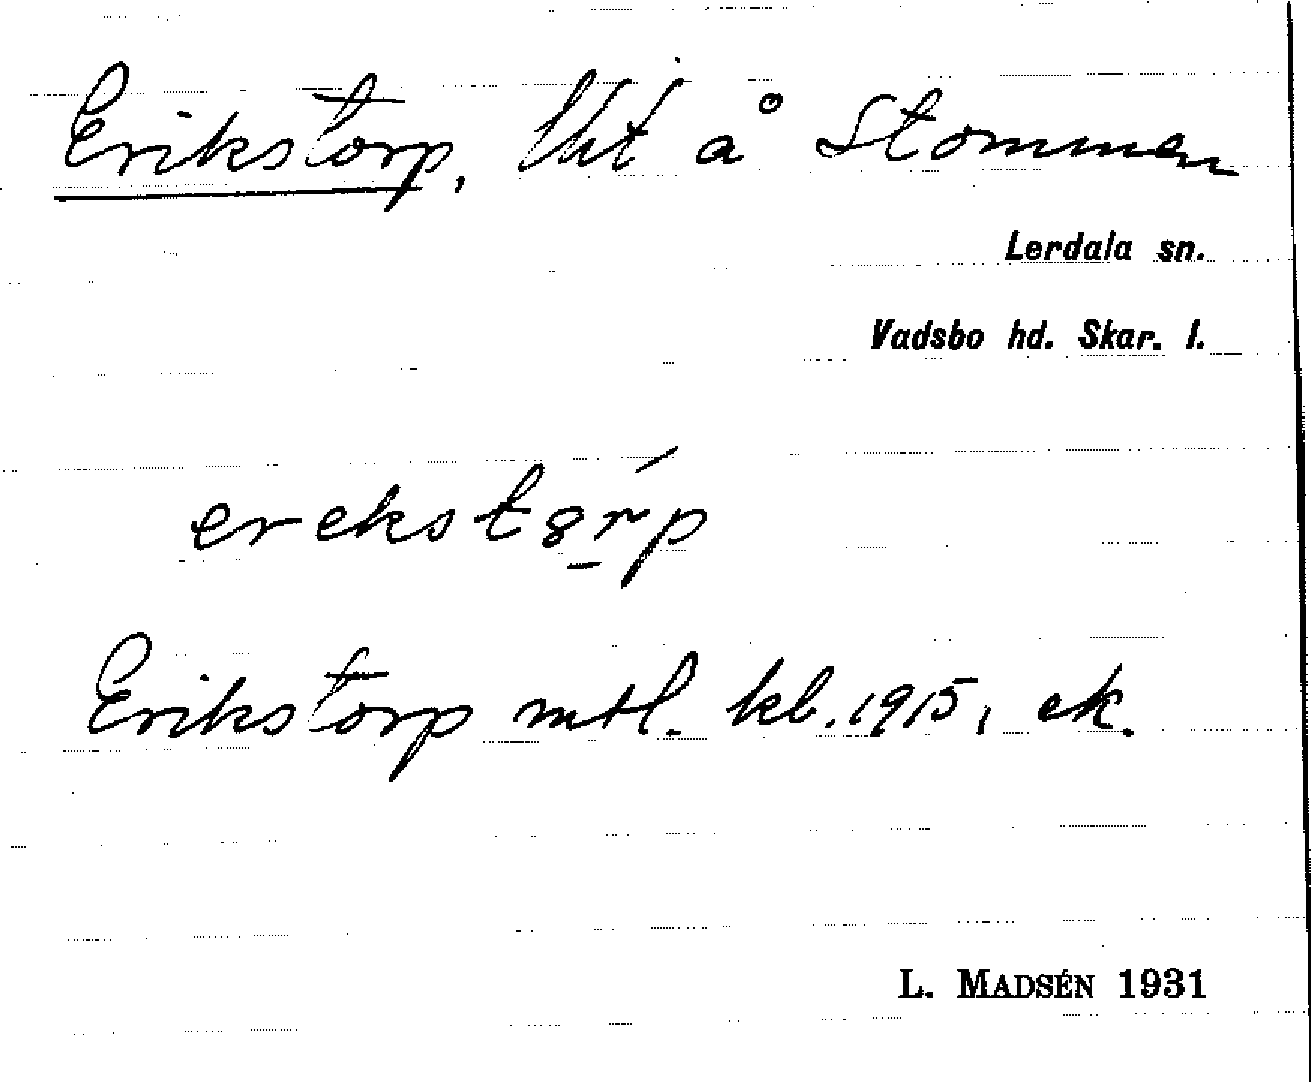 Erikstorp, lht å Stommen
Lerdala sn.
Vadsbo hd. Skar. l.
Erikstorp mtl. kb. 1915, ek.
L. MADSÉN 1931